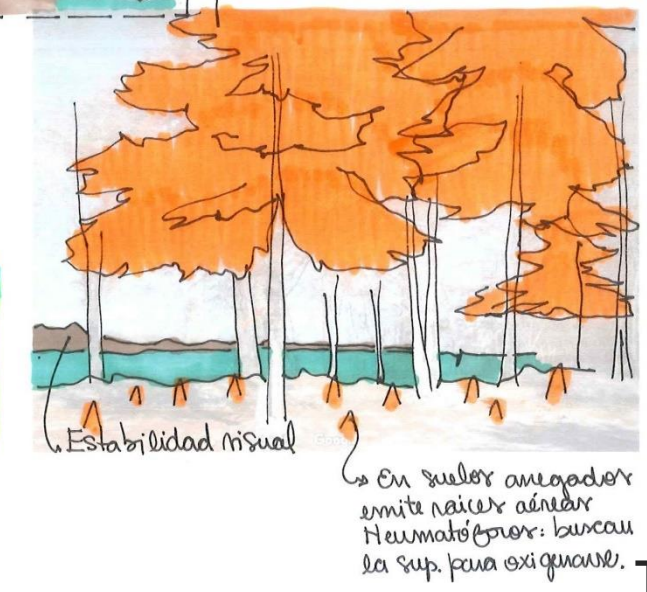 Estabilidad visual
En suelos anegados
emite raices aéreas
Neumatóforos: buscan
la sup. para oxigenarse.